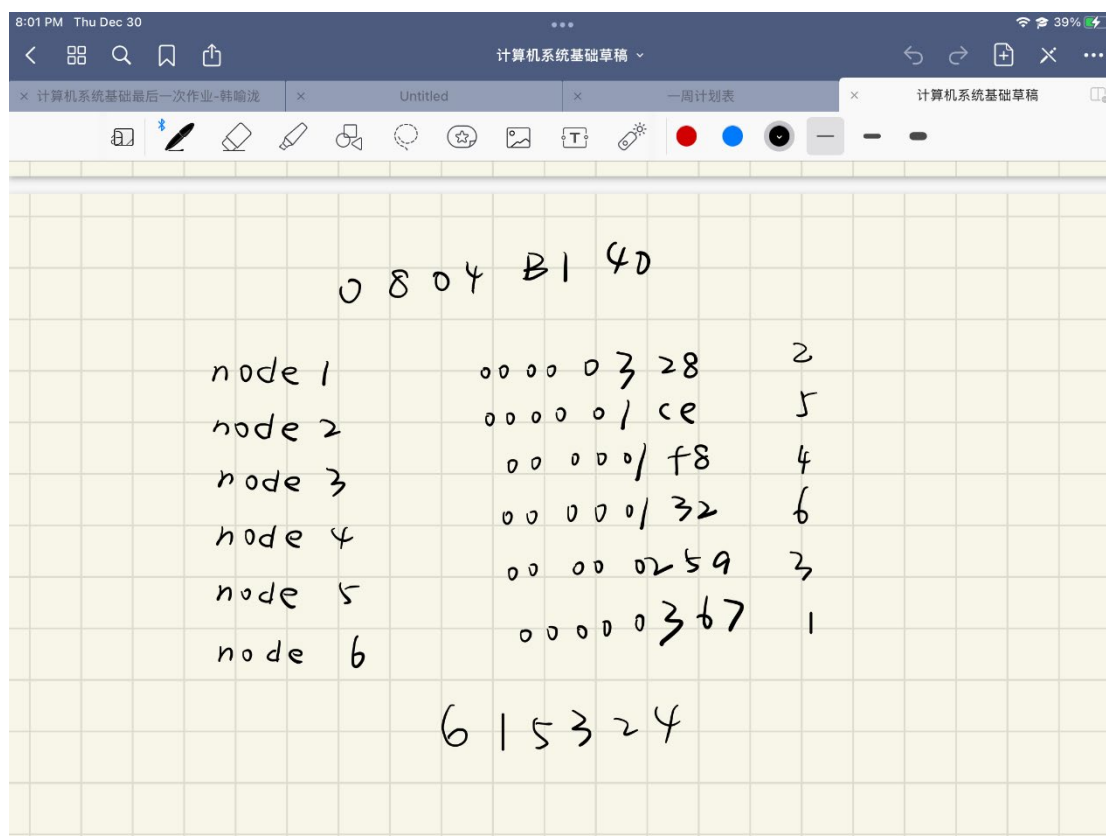 8:01 PM Thu Dec 30 39%
计算机系统基础草稿
计算机系统基础最后一次作业-韩喻泷 Untitled 一周计划表 计算机系统基础草稿
T
0 8 0 4 B1 40
node 1 0000 0 3 28 2
node 2 0000 01 ce 5
node 3 00 00 01 f8 4
node 4 00 00 01 32 6
node 5 00 00 02 59 3
node 6 0000 0 3 67 1
6 1 5 3 2 4